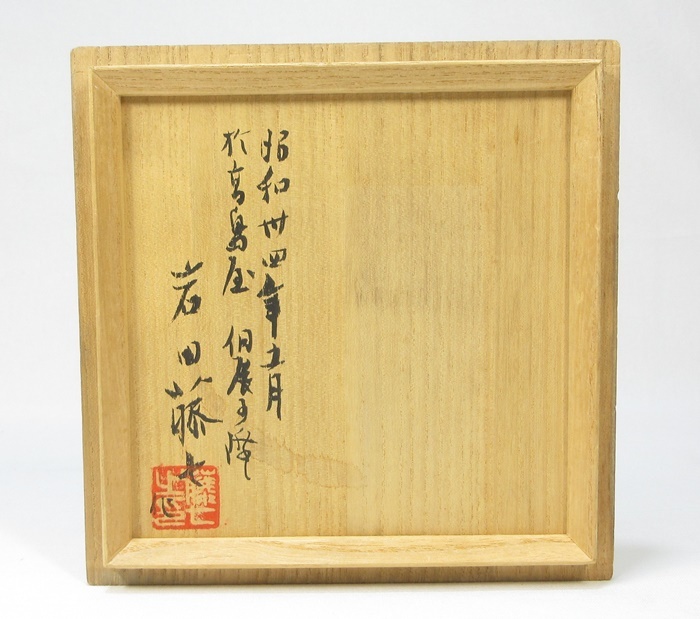 昭和卅四年五月
於髙島屋 個展之際
岩田藤七
作